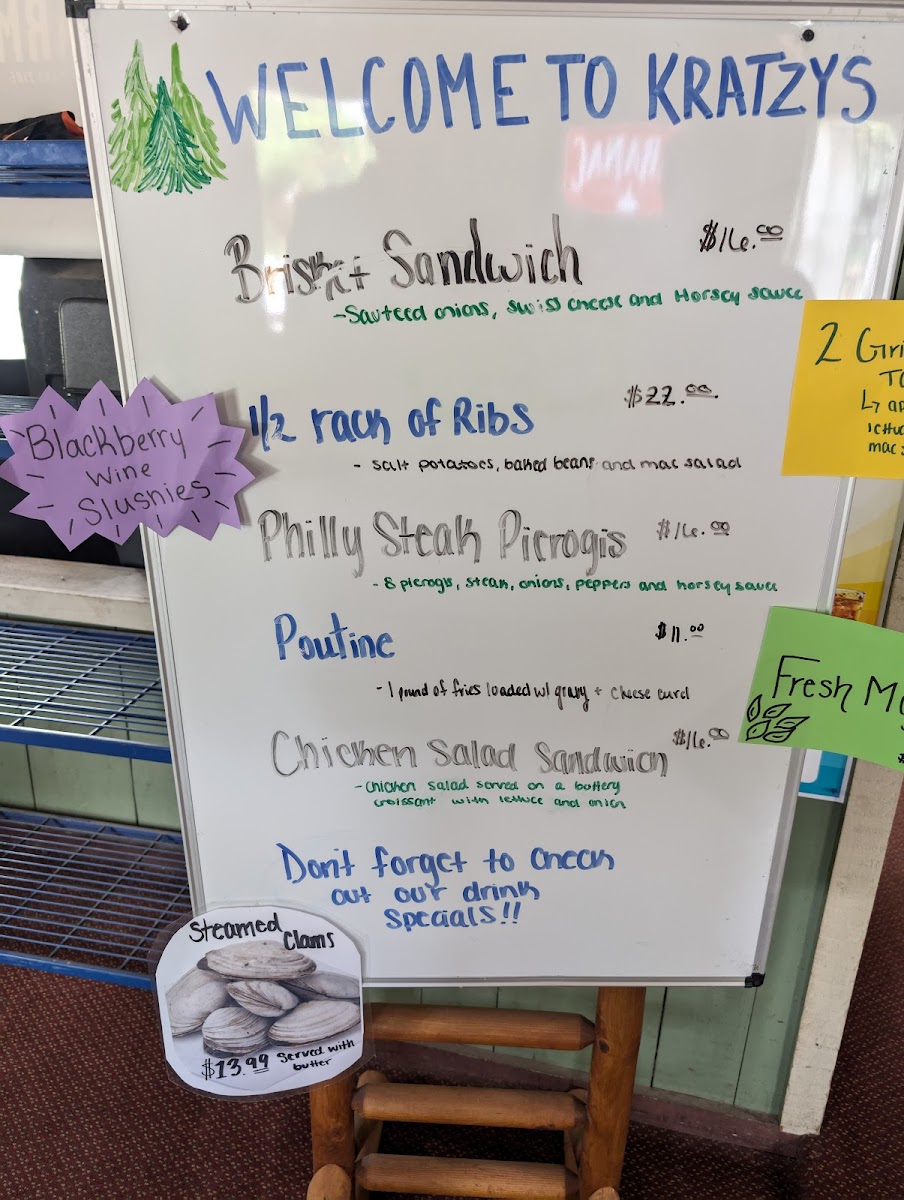 WELCOME TO KRATZYS
Brisket Sandwich $16.00
-Sauteed onions, swiss cheese and Horsey sauce
1/2 rack of Ribs $22.00
- salt potatoes, baked beans and mac salad
Philly Steak Pierogis $16.00
- 8 pierogis, steak, onions, peppers and horsey sauce
Poutine $11.00
- 1 pound of fries loaded w/ gravy + cheese curd
Chicken Salad Sandwich $16.00
-chicken salad served on a buttery
croissant with lettuce and onion
Don't forget to check
out our drink
specials!!
Blackberry
Wine
Slushies
Steamed
Clams
$13.99 Served with
butter
2 Gri
TO
lettuc
mac s
Fresh Mo